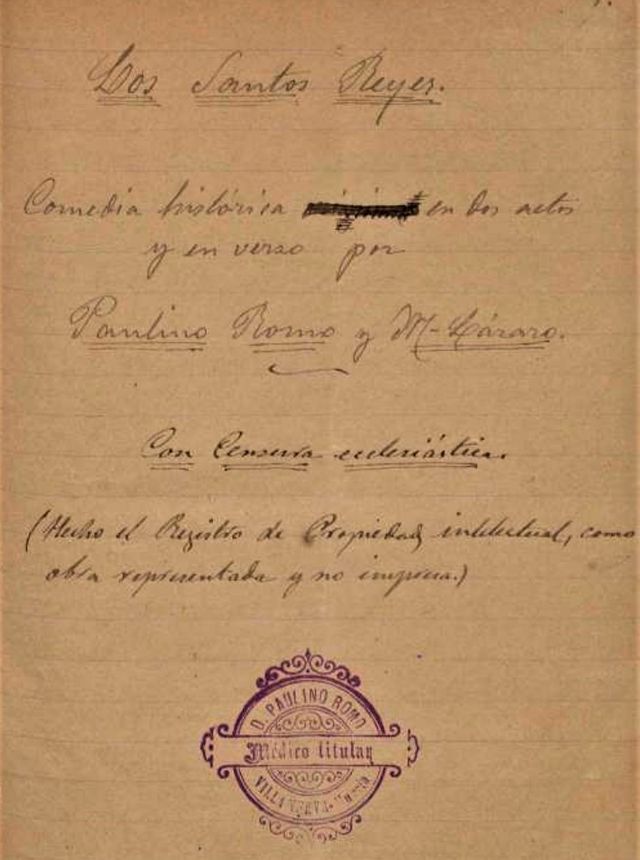 Los Santos Reyes.
Comedia histórica en dos actos
y en verso por
Paulino Romo y M- Lázaro.
Con Censura eclesiástica.
(Hecho el Registro de Propiedad intelectual, como
obra representada y no impresa.)
D. PAULINO ROMO
Médico titular